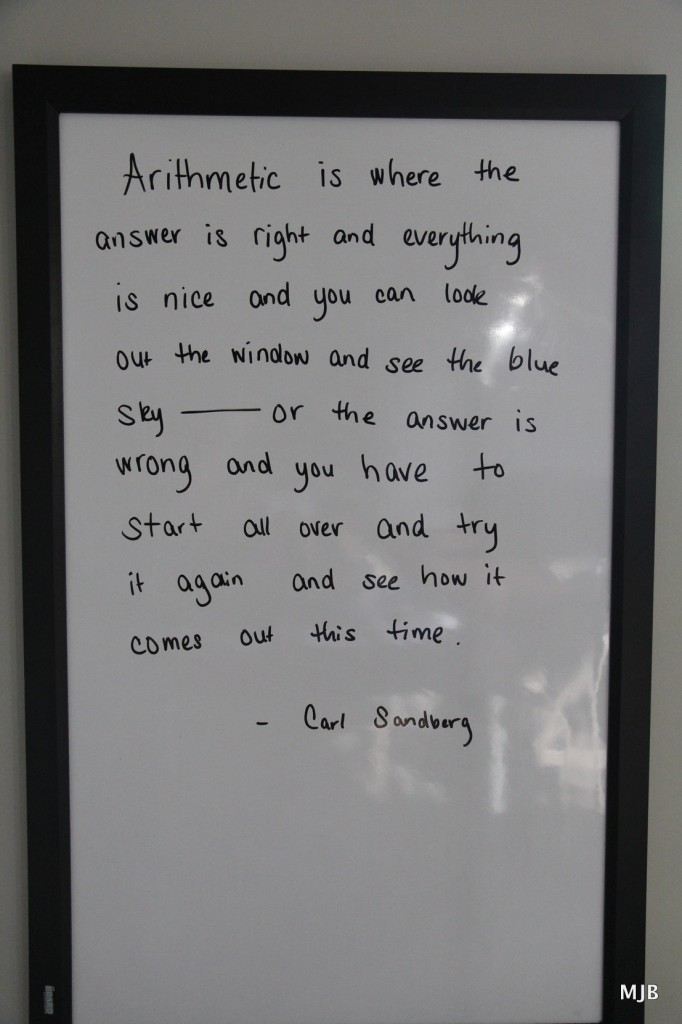 Arithmetic is where the
answer is right and everything
is nice and you can look
out the window and see the blue
sky — or the answer is
wrong and you have to
start all over and try
it again and see how it
comes out this time.
- Carl Sandberg
MJB